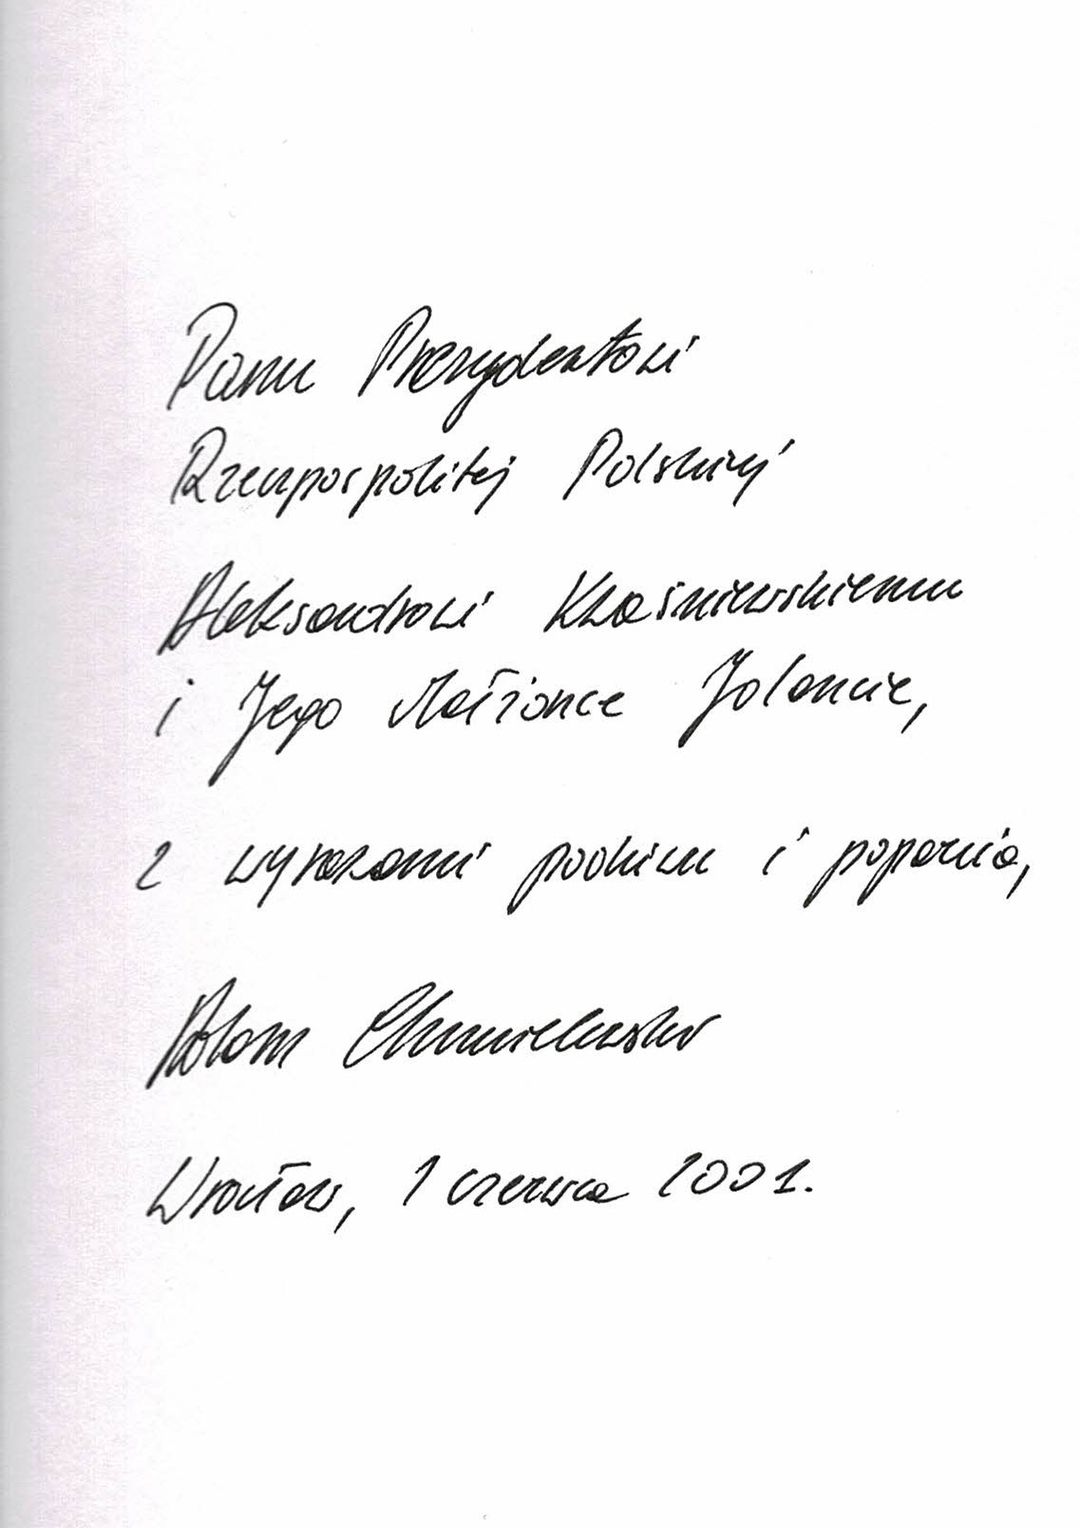 Panu Prezydentowi
Rzeczpospolitej Polskiej
Aleksandrowi Kwaśniewskiemu
i Jego Małżonce Jolancie,
z wyrazami podziwu i poparcia,
Adam Chmielewski
Wrocław, 1 czerwca 2001.